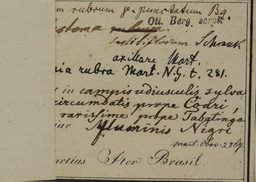 m rubrum γ punctatum Bg
Ott. Berg. script.
stoma
Schrank
axillare Mart.
ia rubra Mart. N.G. t. 281.
in campis udiusculis sylva
circumdatis prope Codri,
rarissime prope Tabatinga
Fluminis Nigri
mart. Obs. 2869.
artius Iter Brasil